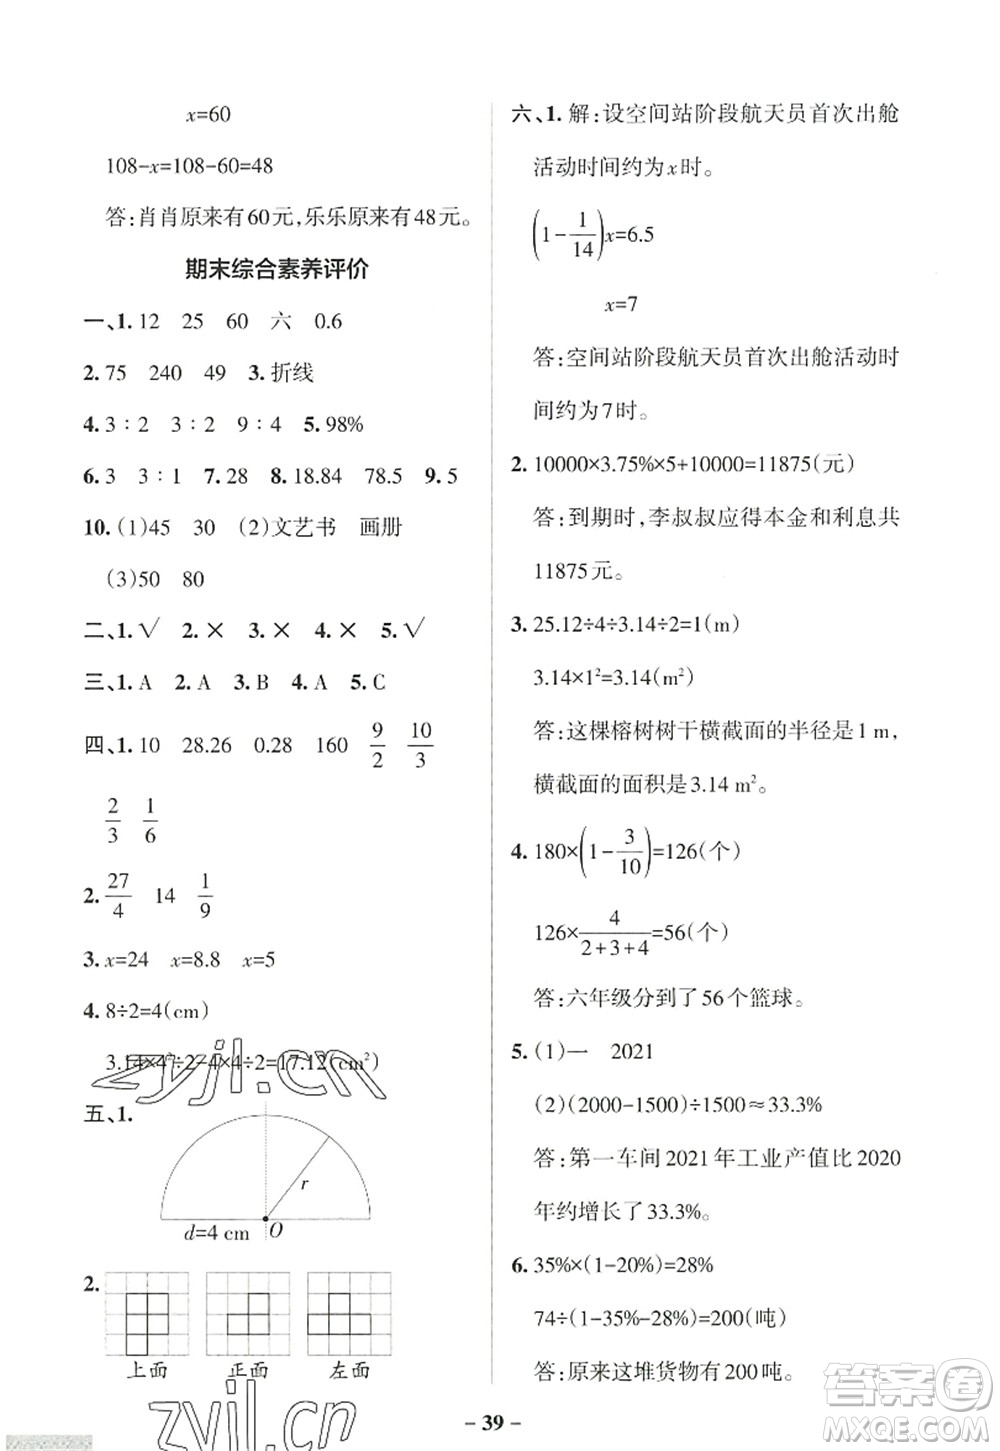 x=60
108-x=108-60=48
答:肖肖原来有60元,乐乐原来有48元。
期末综合素养评价
一、1. 12 25 60 六 0.6
2. 75 240 49 3. 折线
4. 3∶2 3∶2 9∶4 5. 98%
6. 3 3∶1 7. 28 8. 18.84 78.5 9. 5
10. (1)45 30 (2)文艺书 画册
(3)50 80
二、1. √ 2. × 3. × 4. × 5. √
三、1. A 2. A 3. B 4. A 5. C
四、1. 10 28.26 0.28 160 9/2 10/3
2/3 1/6
2. 27/4 14 1/9
3. x=24 x=8.8 x=5
4. 8÷2=4(cm)
3.14×4²÷2-4×4÷2=17.12(cm²)
五、1.
r
d=4 cm O
2.
上面 正面 左面
六、1. 解:设空间站阶段航天员首次出舱
活动时间约为x时。
(1-1/14)x=6.5
x=7
答:空间站阶段航天员首次出舱活动时
间约为7时。
2. 10000×3.75%×5+10000=11875(元)
答:到期时,李叔叔应得本金和利息共
11875元。
3. 25.12÷4÷3.14÷2=1(m)
3.14×1²=3.14(m²)
答:这棵榕树树干横截面的半径是1 m,
横截面的面积是3.14 m²。
4. 180×(1-3/10)=126(个)
126×4/(2+3+4)=56(个)
答:六年级分到了56个篮球。
5. (1)一 2021
(2)(2000-1500)÷1500≈33.3%
答:第一车间2021年工业产值比2020
年约增长了33.3%。
6. 35%×(1-20%)=28%
74÷(1-35%-28%)=200(吨)
答:原来这堆货物有200吨。
- 39 -
zyjl.cn
zyjl.cn
答案圈
MXQE.COM